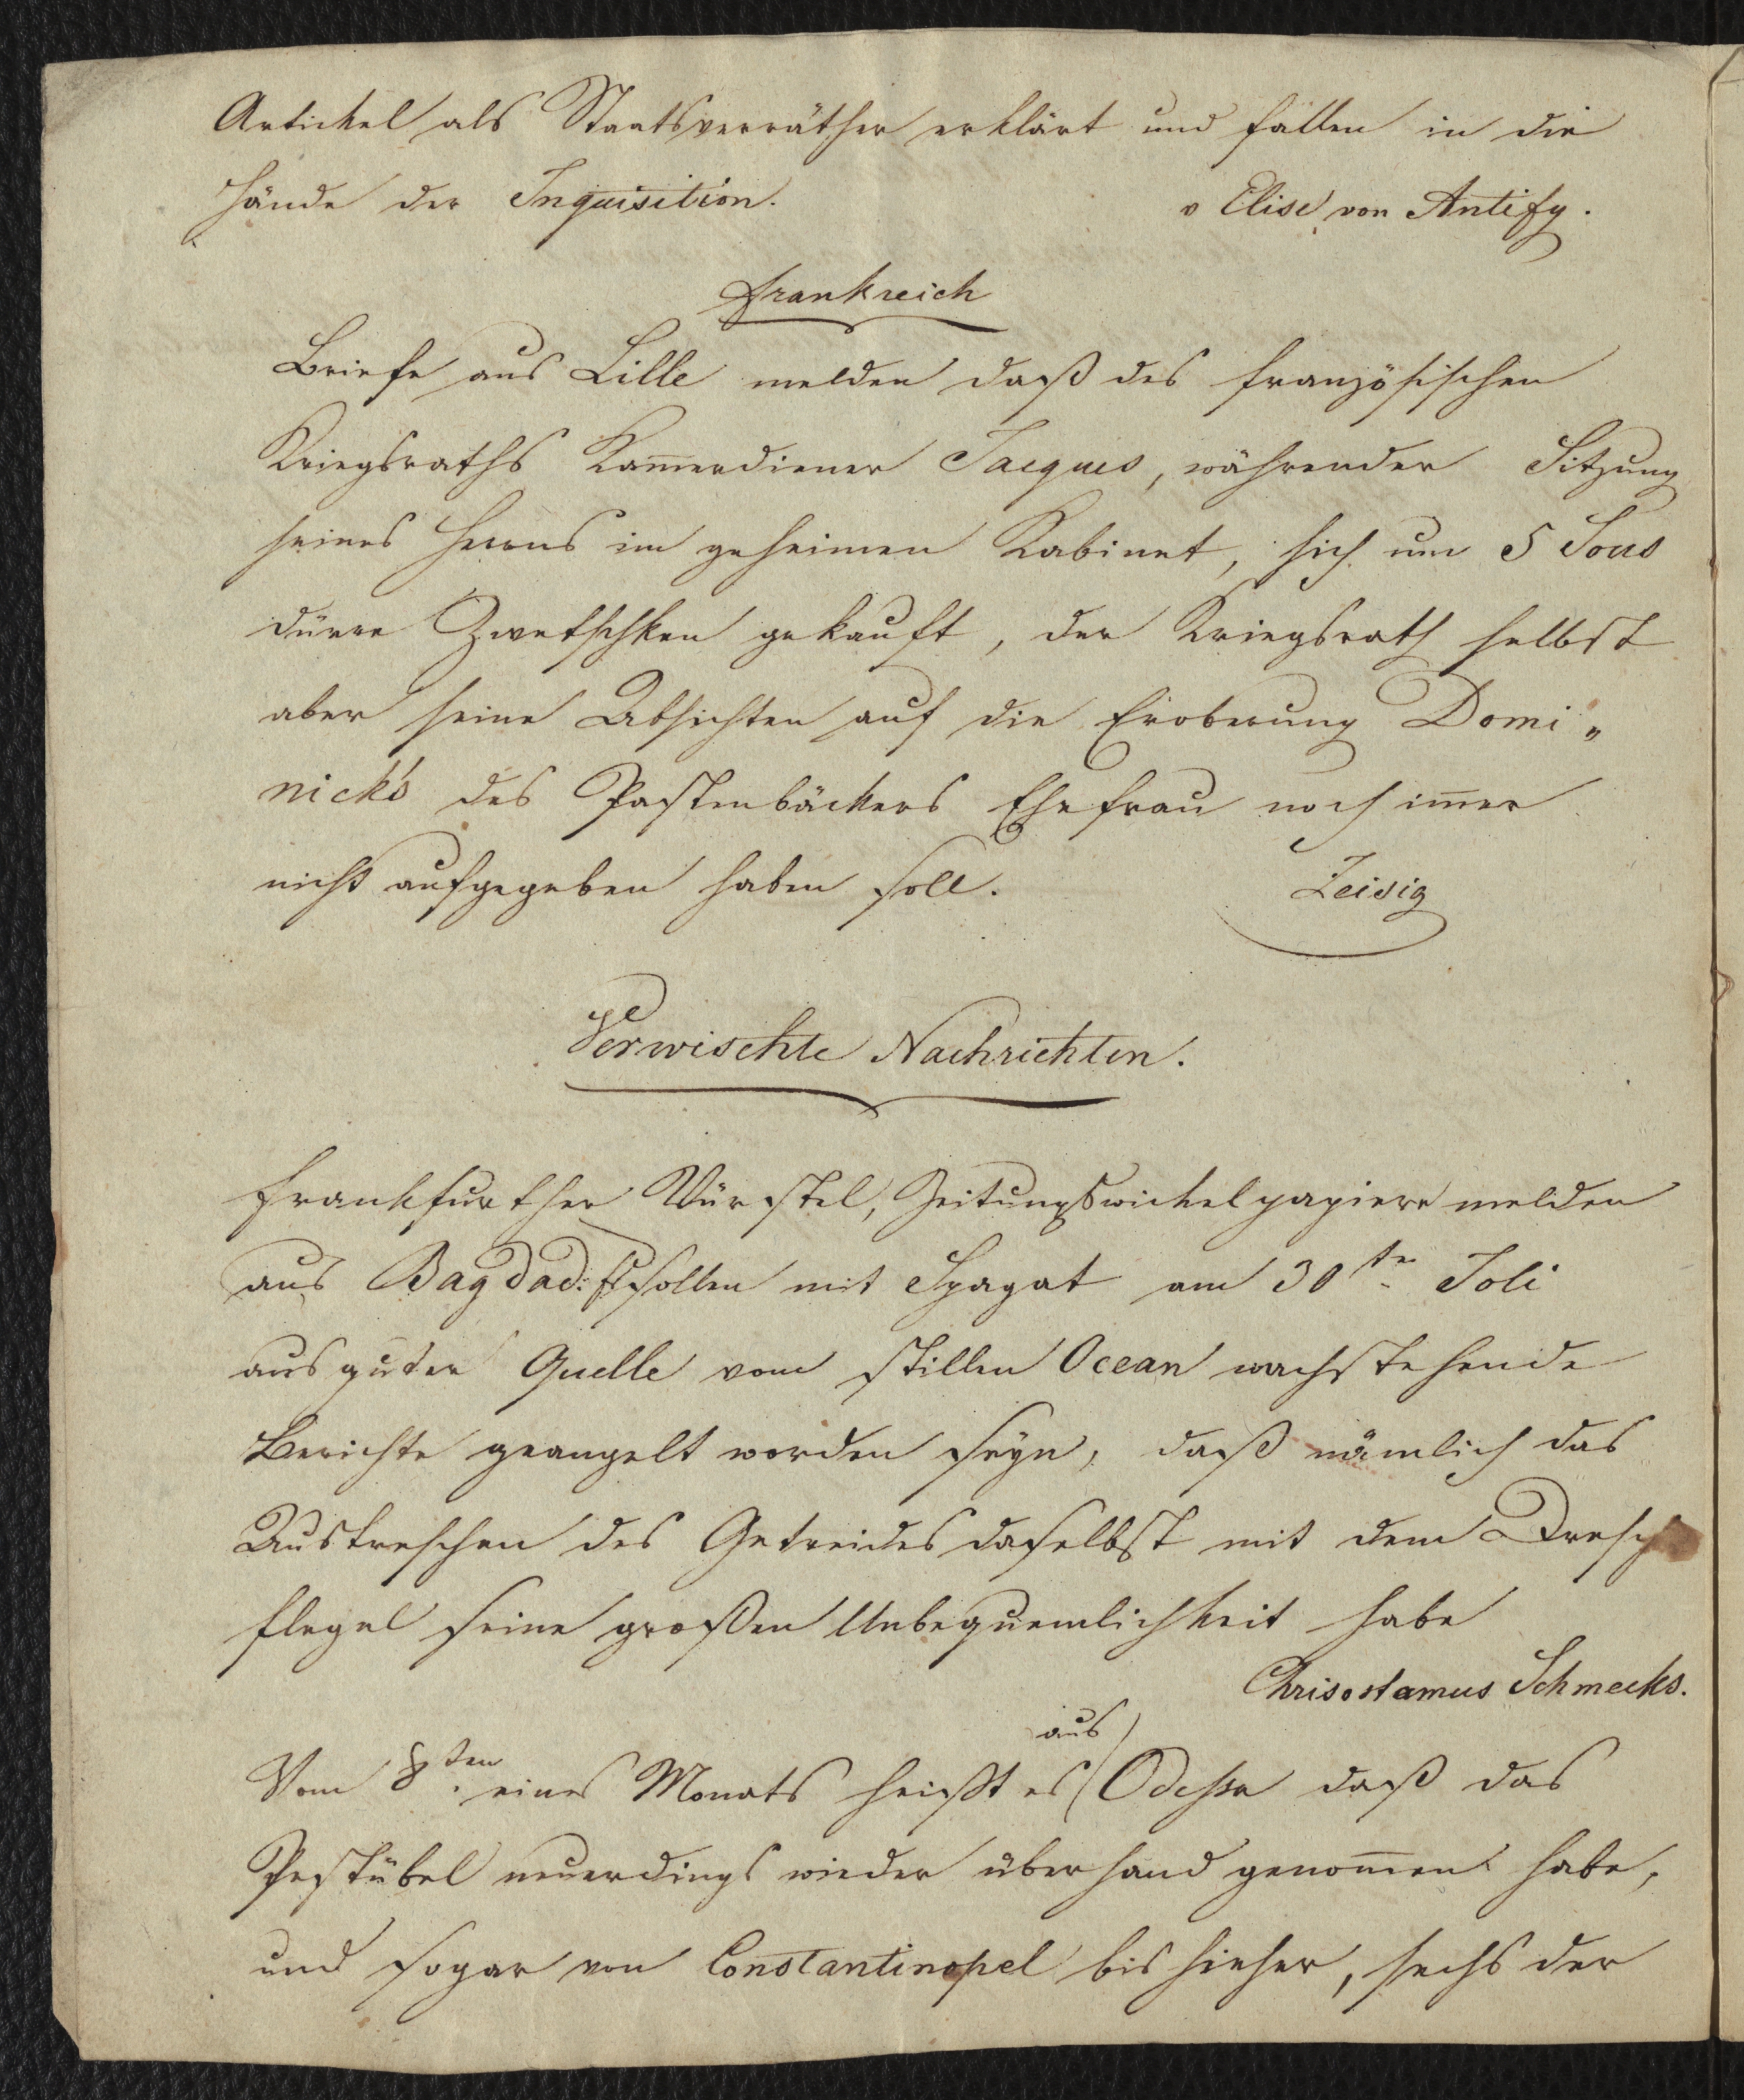 Artickel als Staatsverräther erklärt und fallen in die
Hände der Inquisition.
v Elise von Antify.
Frankreich
Briefe aus Lille melden daß des französischen
Kriegsraths Kam̅erdiener Jacques, während der Sitzung
seines Herrns im geheimen Kabinet, sich um 5 Sous
dürre Zwetschken gekauft, der Kriegsrath selbst
aber seine Absichten auf die Eroberung Domi„
nick's des Pastenbäckers Ehefrau noch im̅er
nicht aufgegeben haben soll.
Zeisig
Verwischte Nachrichten.
Frankfurther Würstel, Zeitungswickelpapiere melden
aus Bagdad: sollen mit Spagat am 30ten Joli
aus guter Quelle vom stillen Ocean nachstehende
Berichte geangelt worden seyn, daß nämlich das
Austreschen des Getreides daselbst mit dem Dresch
flegel seine großen Unbequemlichkeit habe
Chrisostamus Schmecks.
aus
Vom 8ten eines Monats heißt es Odessa daß das
Pestübel neuerdings wieder überhand genom̅en habe,
und sogar von Constantinopel bis hieher, sechs der